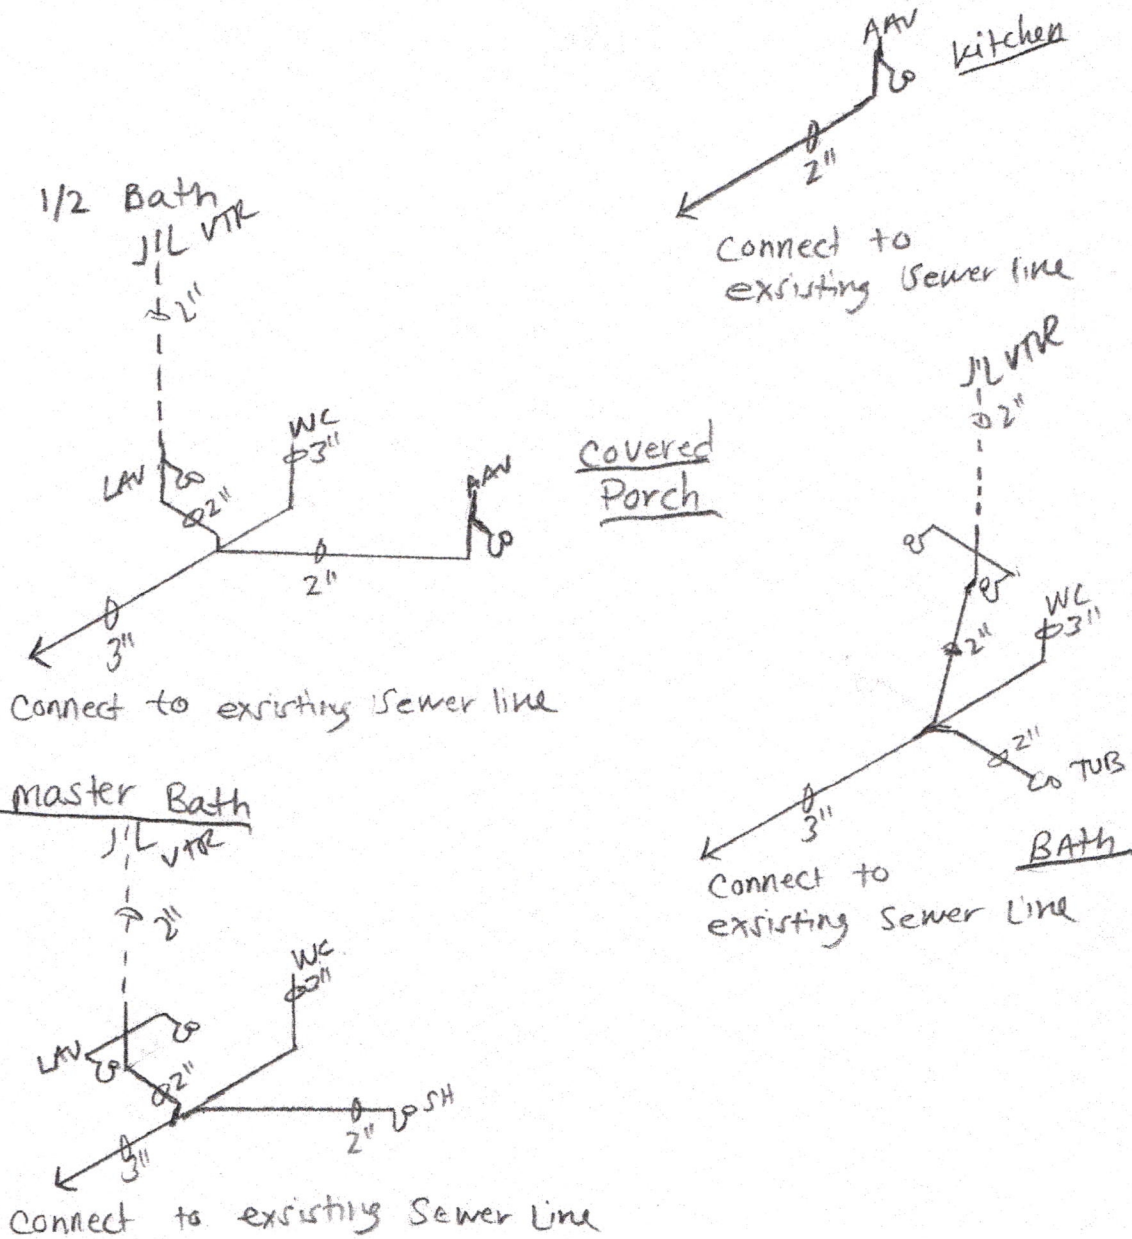 AAV
Kitchen
2"
Connect to
exsisting Sewer line
1/2 Bath
VTR
2"
LAV
2"
WC
3"
AAV
2"
3"
Connect to exsisting Sewer line
Covered
Porch
VTR
2"
2"
WC
3"
2"
TUB
3"
BAth
Connect to
exsisting Sewer Line
master Bath
VTR
2"
WC
3"
LAV
2"
SH
2"
3"
Connect to exsisting Sewer Line